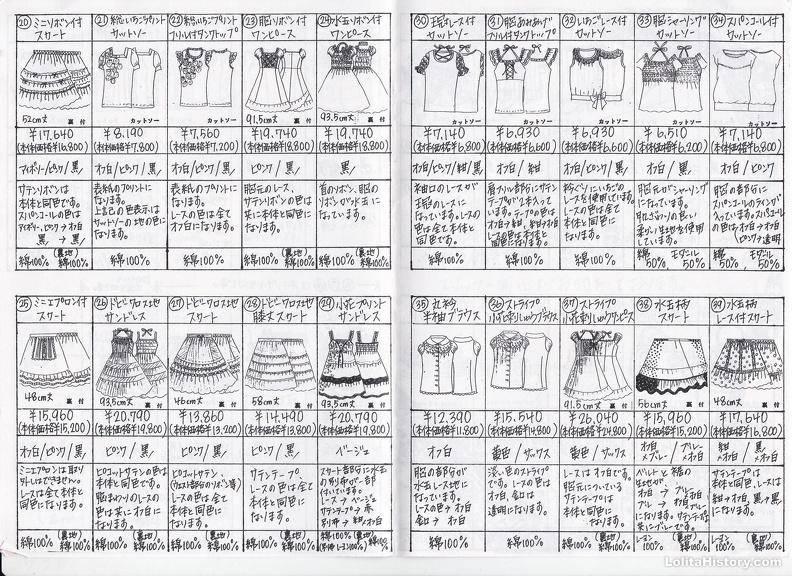 ⑳ミニリボン付
スカート
52cm丈 裏付
¥17,640
(本体価格¥16,800)
アイボリー/ピンク/黒
サテンリボンは
本体と同色です。
スパンコールの色は
アイボリー,ピンク→オフ白
黒→黒
綿100% (裏地)綿100%
㉑
カットソー
カットソー
¥8,190
(本体価格¥7,800)
オフ白/ピンク/黒
表紙のプリントに
なります。
上記の色表示は
カットソーの地の色に
なります。
綿100%
㉒
フリル付タンクトップ
カットソー
¥7,560
(本体価格¥7,200)
オフ白/ピンク/黒
表紙のプリントに
なります。
レースの色は全て
オフ白になります。
綿100%
㉓胸リボン付
ワンピース
91.5cm丈 裏付
¥19,740
(本体価格¥18,800)
ピンク/黒
胸元のレース、
サテンリボンの色は
共に本体と同色に
なります。
綿100% (裏地)綿100%
㉔水玉リボン付
ワンピース
93.5cm丈 裏付
¥19,740
(本体価格¥18,800)
黒
首のリボン、胸の
リボンが水玉に
なっています。
綿100% (裏地)綿100%
㉕ミニエプロン付
スカート
48cm丈 裏付
¥15,960
(本体価格¥15,200)
オフ白/ピンク/黒
ミニエプロンは取り
外しはできません。
レースは全て本体と
同色になります。
綿100% (裏地)綿100%
㉖ドビークロス生地
サンドレス
93.5cm丈 裏付
¥20,790
(本体価格¥19,800)
ピンク/黒
ピコットサテンの色は
本体と同色です。
胸まわりのレースの
色は共にオフ白に
なります。
綿100% (裏地)綿100%
㉗ドビークロス生地
スカート
46cm丈 裏付
¥13,860
(本体価格¥13,200)
ピンク/黒
ピコットサテン、
(ウェスト部分のリボン等)
レースの色は全て
本体と同色に
なります。
綿100% (裏地)綿100%
㉘ドビークロス生地
膝丈スカート
58cm丈 裏付
¥14,490
(本体価格¥13,800)
ピンク/黒
サテンテープ、
レースの色は全て
本体と同色に
なります。
綿100% (裏地)綿100%
㉙小花プリント
サンドレス
93.5cm丈 裏付
¥20,790
(本体価格¥19,800)
ベージュ
スカート部分に水玉
の別布が一部
付いています。
レース→ベージュ
サテンテープ→赤
別布→紺×オフ白
綿100% (裏地)綿100%
㉚玉phones
カットソー
カットソー
¥7,140
(本体価格¥6,800)
オフ白/ピンク/紺/黒
袖口のレースが
玉phones
なっています。レースの
色は全て本体と
同色です。
綿100%
㉛胸あみあげ
フリル付タンクトップ
カットソー
¥6,930
(本体価格¥6,600)
オフ白/紺
肩フリル部分にサテン
テープが2本入って
います。テープの色は
オフ白→紺、紺→オフ白
レースの色は本体と
同色になります。
綿100%
㉜いちごレース付
カットソー
カットソー
¥6,930
(本体価格¥6,600)
オフ白/ピンク/黒
衿ぐりにいちごの
レースを使用しています。
レースの色は全て
本体と同色に
なります。
綿100%
㉝胸シャーリング
カットソー
カットソー
¥6,510
(本体価格¥6,200)
オフ白/黒
胸元がシャーリング
になっています。
肌ざわりの良い
柔らかい生地を使用
しています。
綿50% モダール50%
㉞スパンコール付
カットソー
カットソー
¥7,140
(本体価格¥6,800)
オフ白/ピンク
胸の部分に
スパンコールのラインが
入っています。スパンコール
の色はオフ白→オフ白
ピンク→透明
綿50% モダール50%
㉟丸衿
半袖ブラウス
¥12,390
(本体価格¥11,800)
オフ白
胸の部分が
水玉レース地に
なっています。
レースの色→オフ白
釦の色→オフ白
綿100%
㊱ストライプ
小花刺しゅうブラウス
¥15,540
(本体価格¥14,800)
藤色/サックス
淡い色のストライプ
です。レースの色は
オフ白、釦は
透明になります。
綿100%
㊲ストライプ
小花刺しゅうワンピース
91.5cm丈 裏付
¥26,040
(本体価格¥24,800)
藤色/サックス
レースはオフ白です。
胸元についている
サテンテープは
本体と同色に
なります。
綿100% (裏地)綿100%
㊳水玉柄
スカート
56cm丈 裏付
¥15,960
(本体価格¥15,200)
オフ白×ブルー/ブルー×オフ白
になります。サテンテープは
共にブルーです。
レーヨン100% (裏地)綿100%
㊴水玉柄
レース付スカート
48cm丈 裏付
¥17,640
(本体価格¥16,800)
紺×オフ白/黒×オフ白
サテンテープは
本体と同色、
レースは
紺→オフ白、黒→黒に
なります。
レーヨン100% (裏地)綿100%
LolitaHistory.com